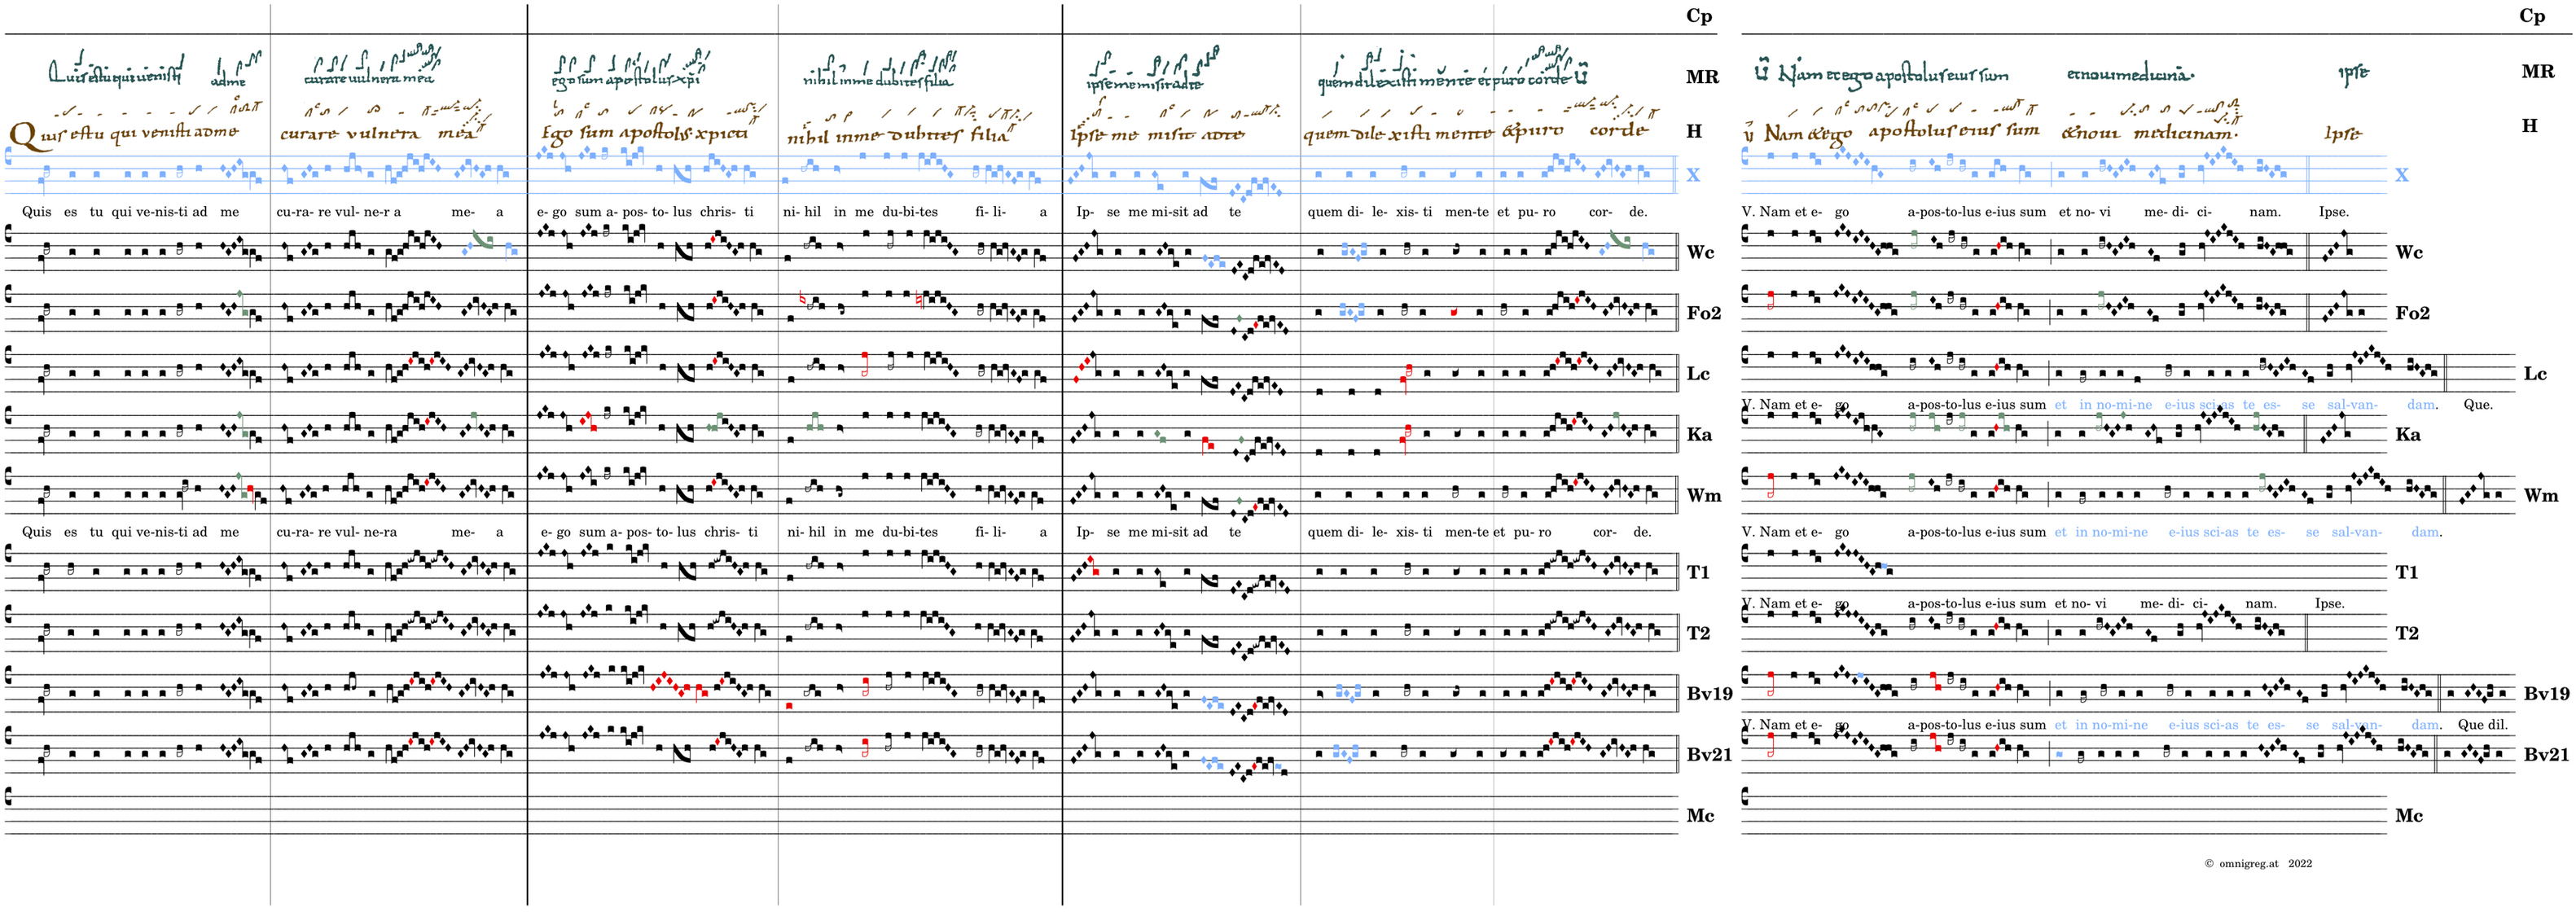 Cp Cp
Quis es tu qui venisti ad me curare vulnera mea ego sum apostolus xpi nihil in me dubites filia ipse me misit ad te quem dilexisti mente et puro corde V̄ MR V̄ Nam et ego apostolus eius sum et noui medicinā. ipse MR
Quis es tu qui venisti ad me curare vulnera mea Ego sum apostolus xpicti nihil in me dubites filia Ipse me misit ad te quem dilexisti mente & puro corde H V̄ Nam & ego apostolus eius sum & noui medicinam. Ipse H
X X
Quis es tu qui ve-nis-ti ad me cu-ra- re vul- ne-r a me- a e- go sum a- pos- to- lus chris- ti ni- hil in me du-bi-tes fi- li- a Ip- se me mi-sit ad te quem di- le- xis- ti men-te et pu- ro cor- de. V. Nam et e- go a-pos-to-lus e-ius sum et no- vi me- di- ci- nam. Ipse.
Wc Wc
Fo2 Fo2
Lc Lc
V. Nam et e- go a-pos-to-lus e-ius sum et in no-mi-ne e-ius sci-as te es- se sal-van- dam. Que.
Ka Ka
Wm Wm
Quis es tu qui ve-nis-ti ad me cu-ra- re vul- ne-ra me- a e- go sum a- pos- to- lus chris- ti ni- hil in me du-bi-tes fi- li- a Ip- se me mi-sit ad te quem di- le- xis- ti men-te et pu- ro cor- de. V. Nam et e- go a-pos-to-lus e-ius sum et in no-mi-ne e-ius sci-as te es- se sal-van- dam.
T1 T1
V. Nam et e- go a-pos-to-lus e-ius sum et no- vi me- di- ci- nam. Ipse.
T2 T2
Bv19 Bv19
V. Nam et e- go a-pos-to-lus e-ius sum et in no-mi-ne e-ius sci-as te es- se sal-van- dam. Que dil.
Bv21 Bv21
Mc Mc
© omnigreg.at 2022